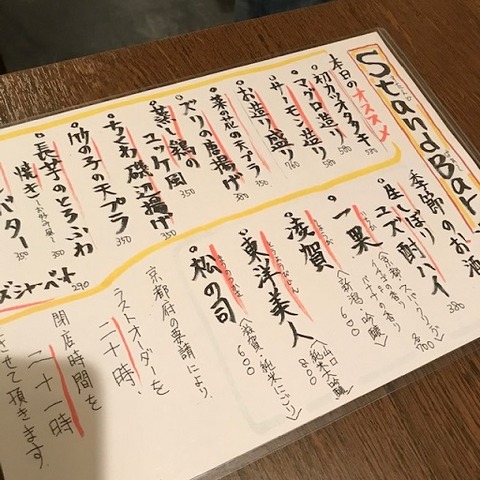 Stand Bar
本日のオススメ
初カツオタタキ 580
マグロ造り 580
サーモン造り
お造り盛り 760
菜の花の天プラ 350
ズリの唐揚げ 380
蒸し鶏のユッケ風 350
ちくわ磯辺揚げ 350
竹の子の天プラ 350
長芋のとろふわ焼き 350
バター
ズシャーベット 290
季節のお酒
生しぼりユズ酎ハイ 380
一果
凌賀
〈新潟・吟醸〉 600
東洋美人
〈山口・純米大吟醸〉 800
松の司
〈滋賀・純米にごり〉 600
京都府の要請により、
ラストオーダーを
二十時、
閉店時間を
二十一時
させて頂きます。